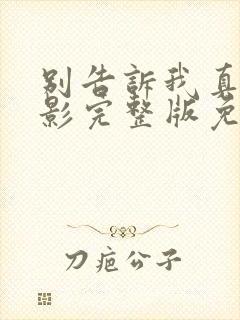 别告訴我真
影完整版免
刀疤公子